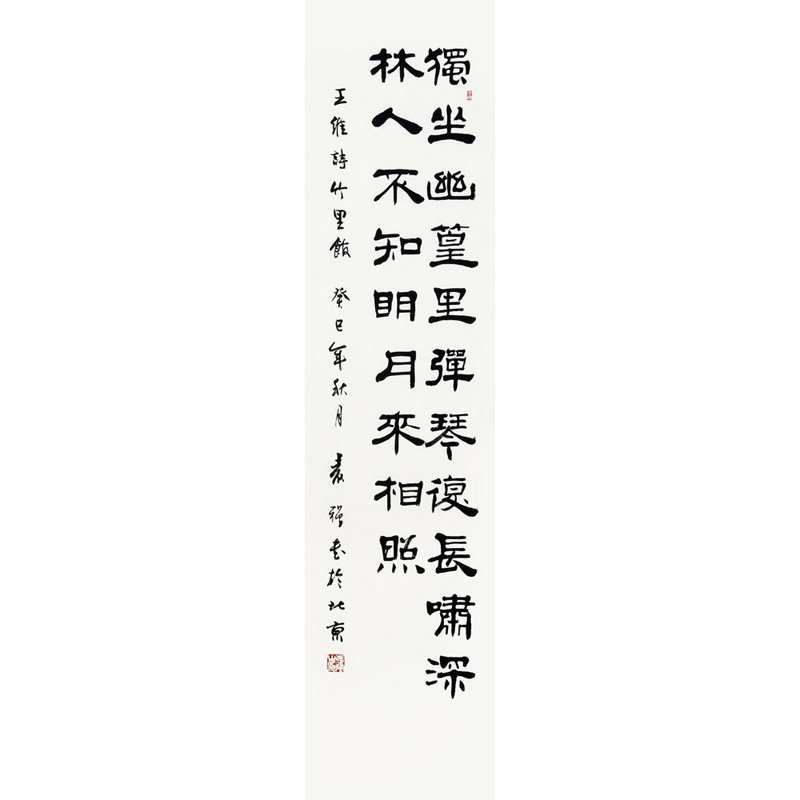 獨坐幽篁里彈琴復長嘯深
林人不知明月來相照
王維詩竹里館 癸巳年秋月 袁強書於北京